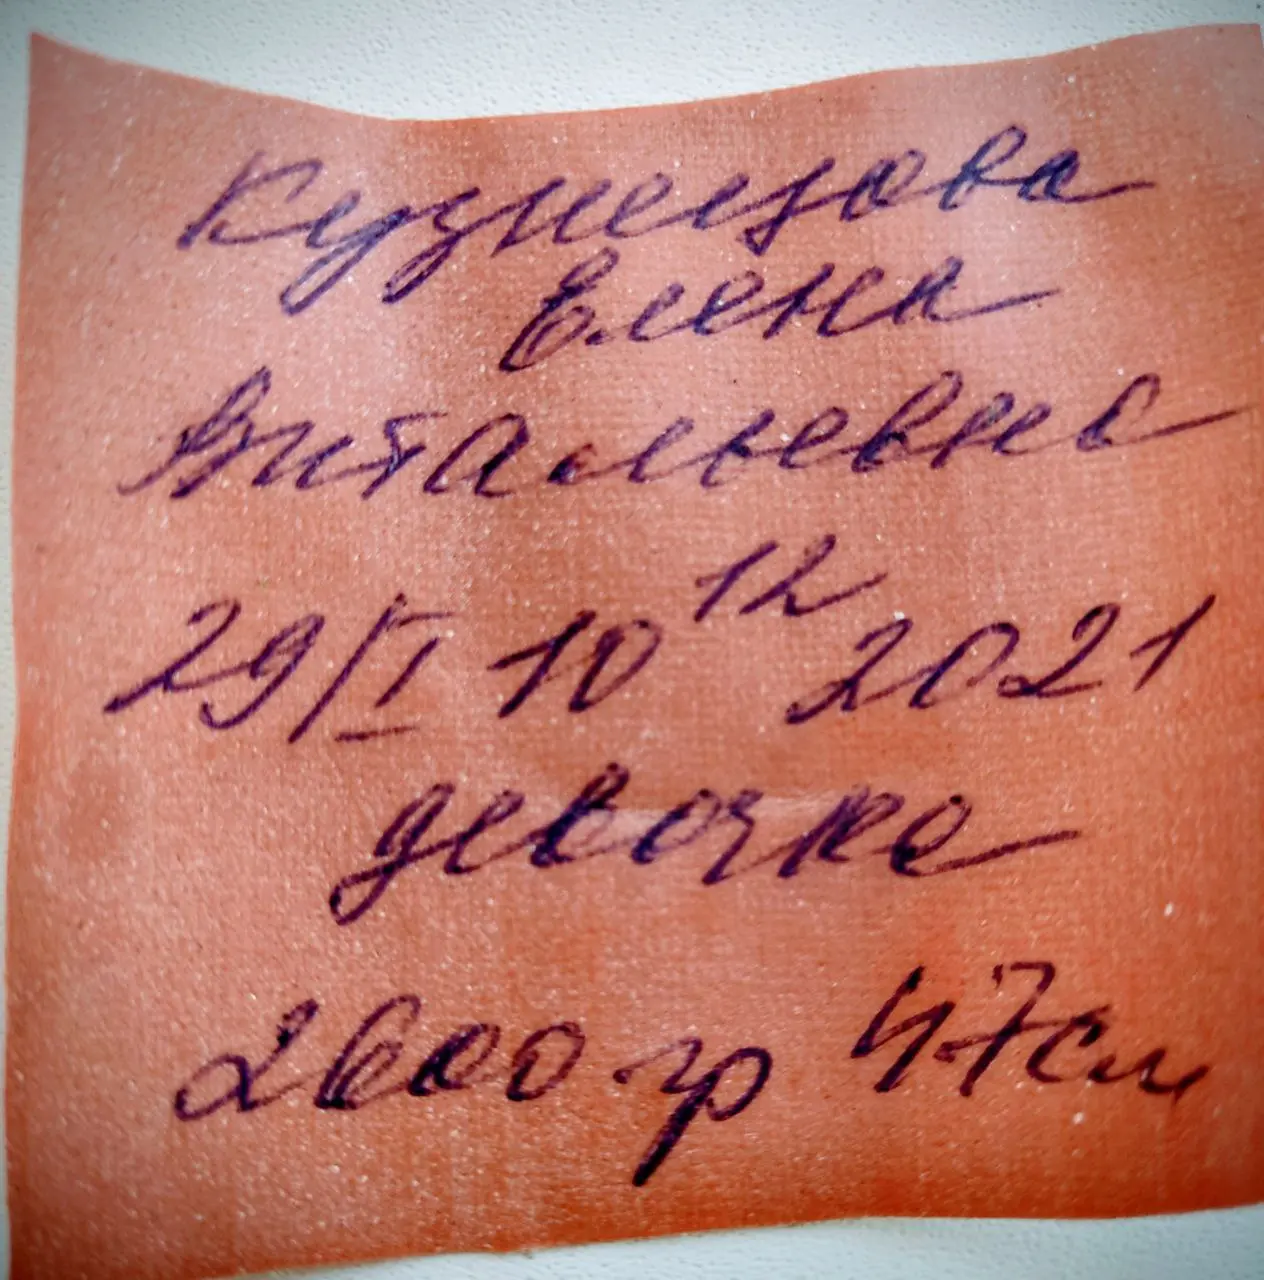 Кузнецова
Елена
Витальевна
29/I 10¹² 2021
девочка
2600 гр 47 см